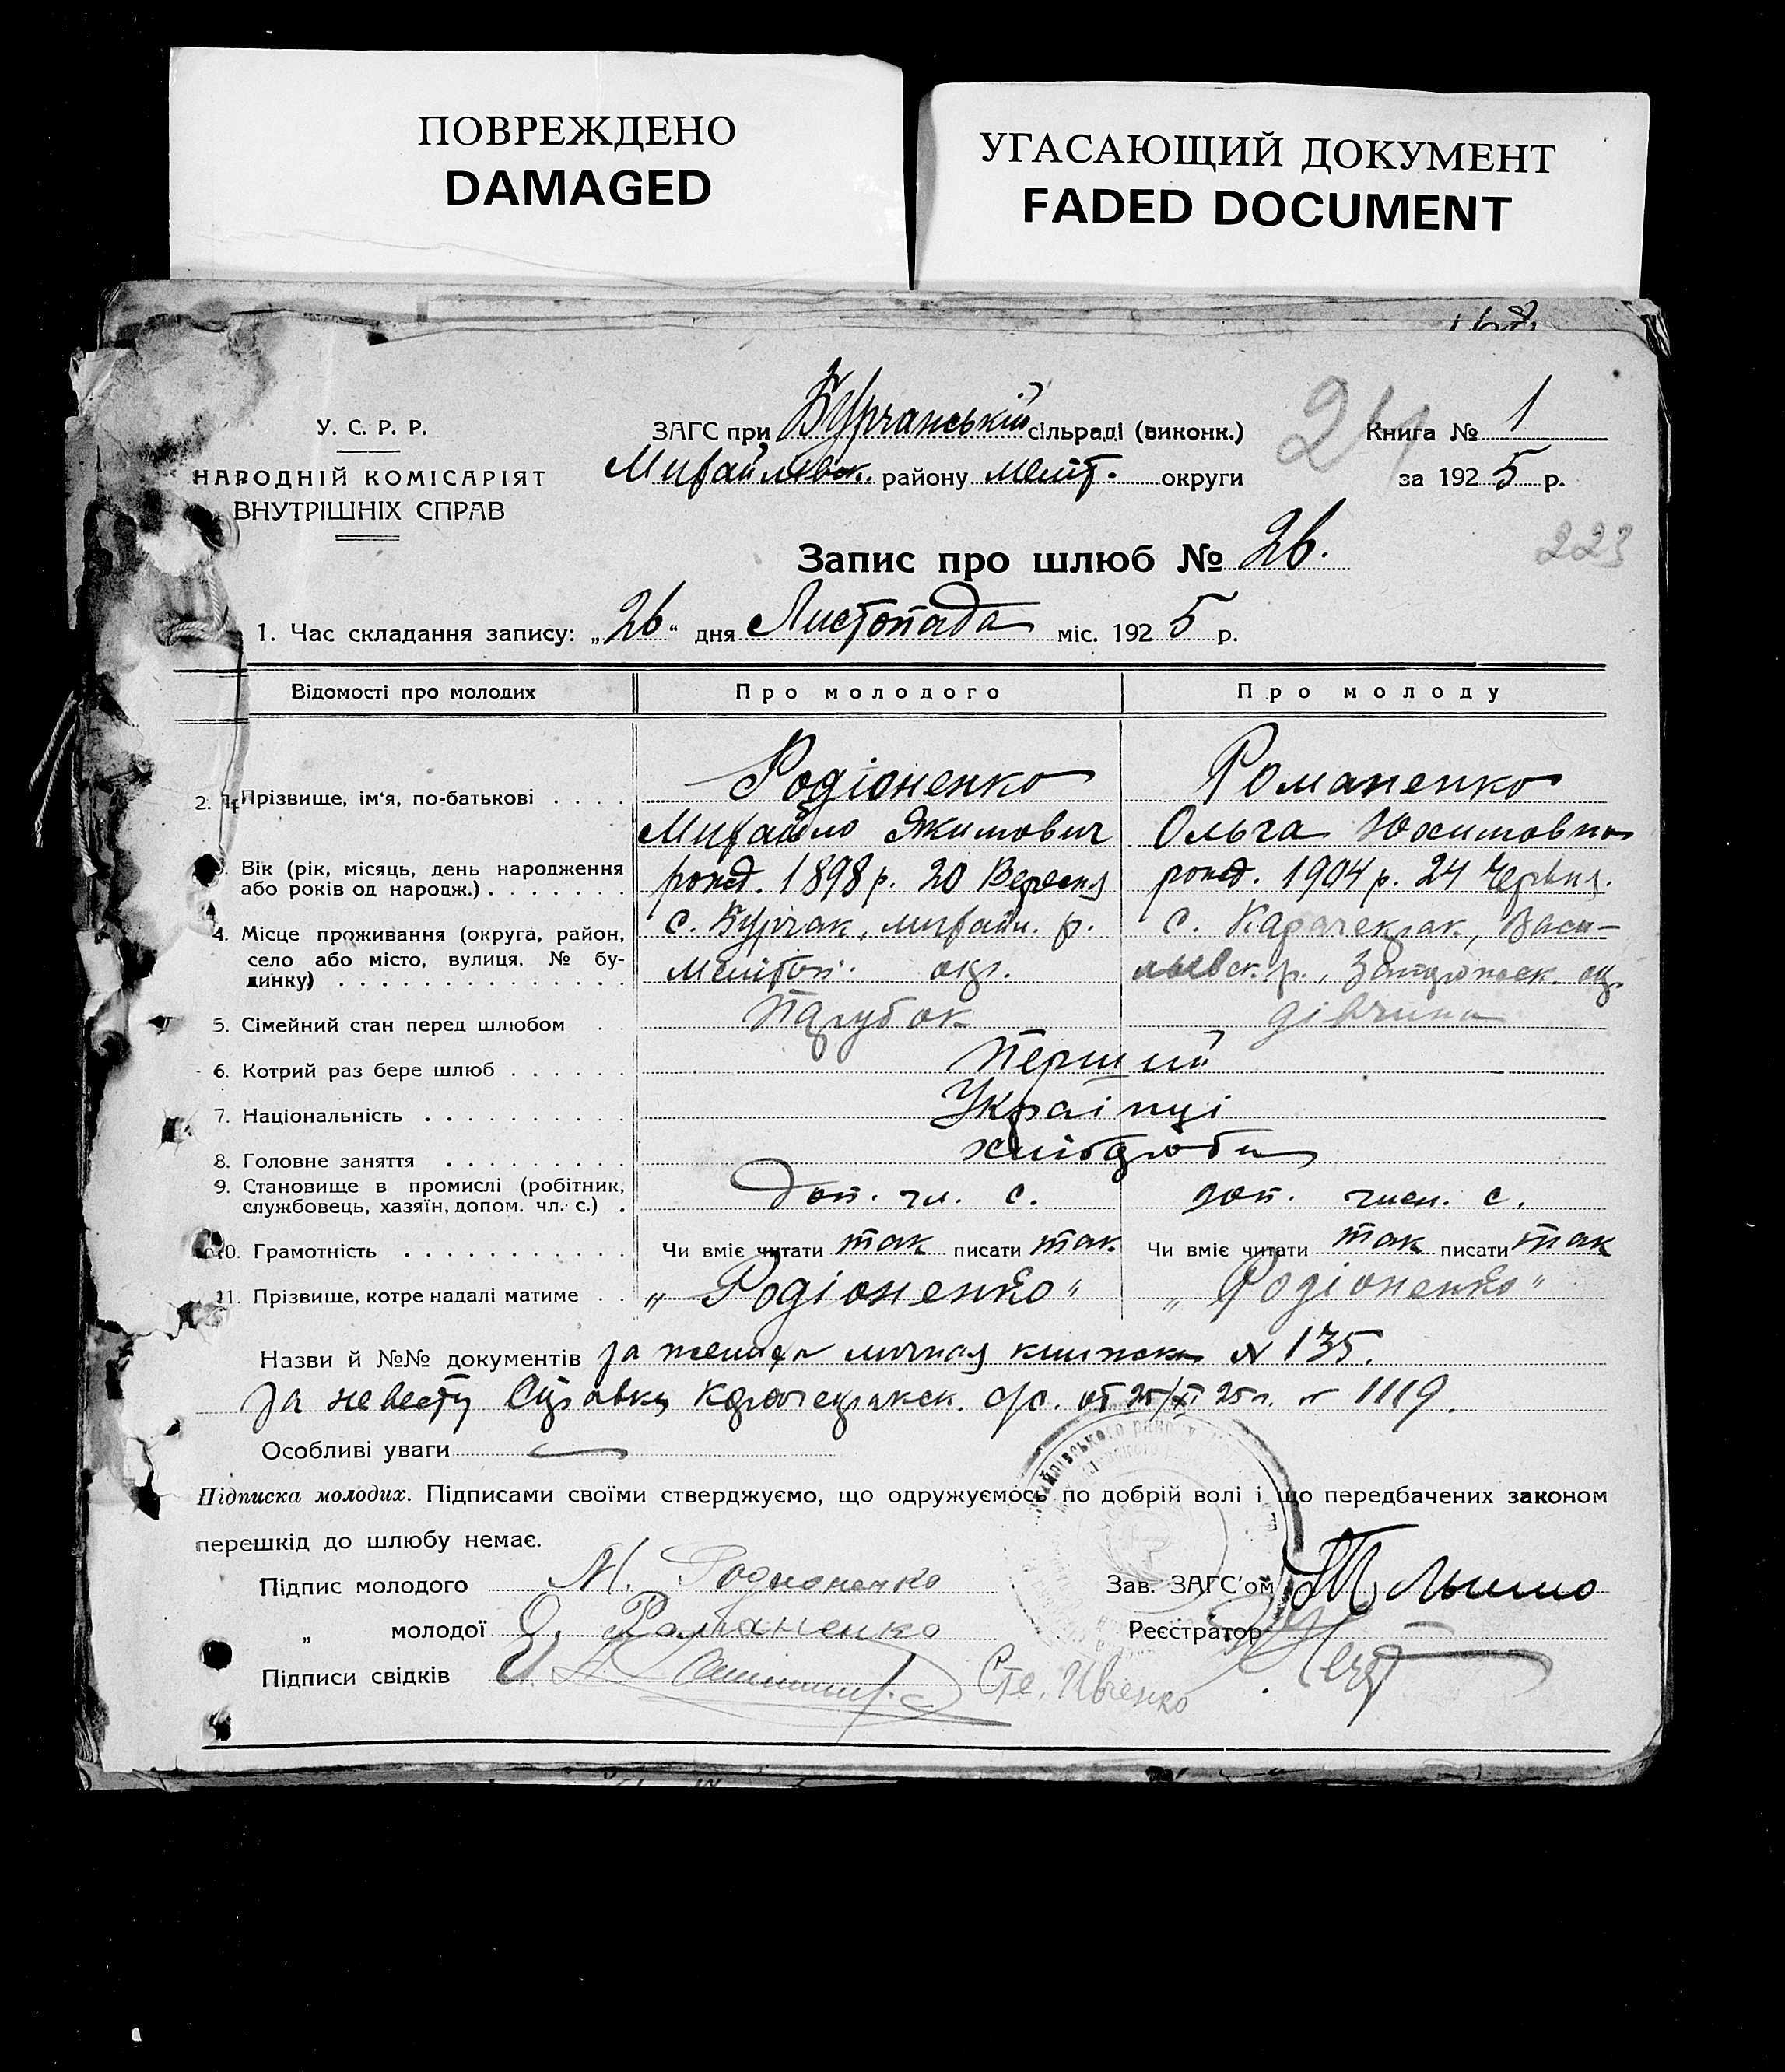 ПОВРЕЖДЕНО
DAMAGED
УГАСАЮЩИЙ ДОКУМЕНТ
FADED DOCUMENT
168.
У. С. Р. Р.
НАРОДНІЙ КОМІСАРІЯТ
ВНУТРІШНІХ СПРАВ
ЗАГС при Бурчанській сільраді (виконк.)
Михайлівск. району Меліт. округи
24
Книга № 1
за 1925 р.
Запис про шлюб № 26.
223
1. Час складання запису: „26“ дня Листопада міс. 1925 р.
Відомості про молодих Про молодого Про молоду
2. Прізвище, ім‘я, по-батькові Родіоненко Романенко
Михайло Якимович Ольга Юхимовна
3. Вік (рік, місяць, день народження або років од народж.) рожд. 1898 р. 20 Вересня рожд. 1904 р. 24 Червня.
4. Місце проживання (округа, район, село або місто, вулиця, № будинку) с. Бурчак, михайл. р. с. Карачекрак, Васи-
Мелітоп. окр. льевск. р., Запорожск. ок.
5. Сімейний стан перед шлюбом Парубок дівчина
6. Котрий раз бере шлюб Перший
7. Національність Украінці
8. Головне заняття хлібороби
9. Становище в промислі (робітник, службовець, хазяїн, допом. чл. с.) доп. чл. с. доп. член. с.
10. Грамотність Чи вміє читати так писати так Чи вміє читати так писати так
11. Прізвище, котре надалі матиме „Родіоненко“ „Родіоненко“
Назви й №№ документів за жениха личная книжка № 135.
За невесту Справка Карачекракск. с/с. от 25/XI 25 г. № 1119.
Особливі уваги
Підписка молодих. Підписами своїми стверджуємо, що одружуємось по добрій волі і що передбачених законом
перешкід до шлюбу немає.
Підпис молодого М. Родионенко Зав. ЗАГС‘ом
„ молодої О. Романенко Реєстратор
Підписи свідків Сте. Ивченко